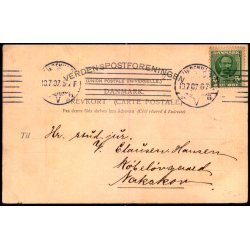 VERDENSPOSTFORENINGEN
(UNION POSTALE UNIVERSELLE)
DANMARK
BREVKORT (CARTE POSTALE)
Paa denne Side skrives kun Adressen (Côté réservé à l'adresse)
19.7.07. 6-7 F
19.7.07. 6-7
DANMARK
Til
Hr. stud. jur.
V. Clausen Hansen
Nakskov